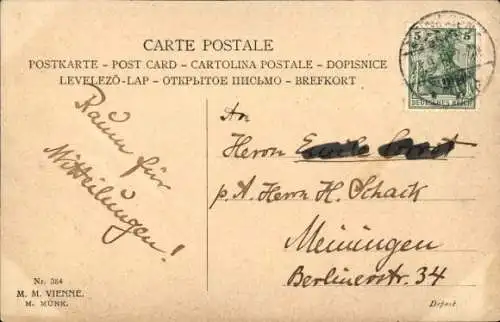 CARTE POSTALE
POSTKARTE – POST CARD – CARTOLINA POSTALE – DOPISNICE
LEVELEZŐ-LAP – ОТКРЫТОЕ ПИСЬМО – BREFKORT
5 5
DEUTSCHES REICH
Raum für
Mitteilungen!
An
Herrn
p. A. Herrn H. Schack
Meiningen
Berlinerstr. 34
Nr. 384
M. M. VIENNE.
M. MUNK.
Depost.